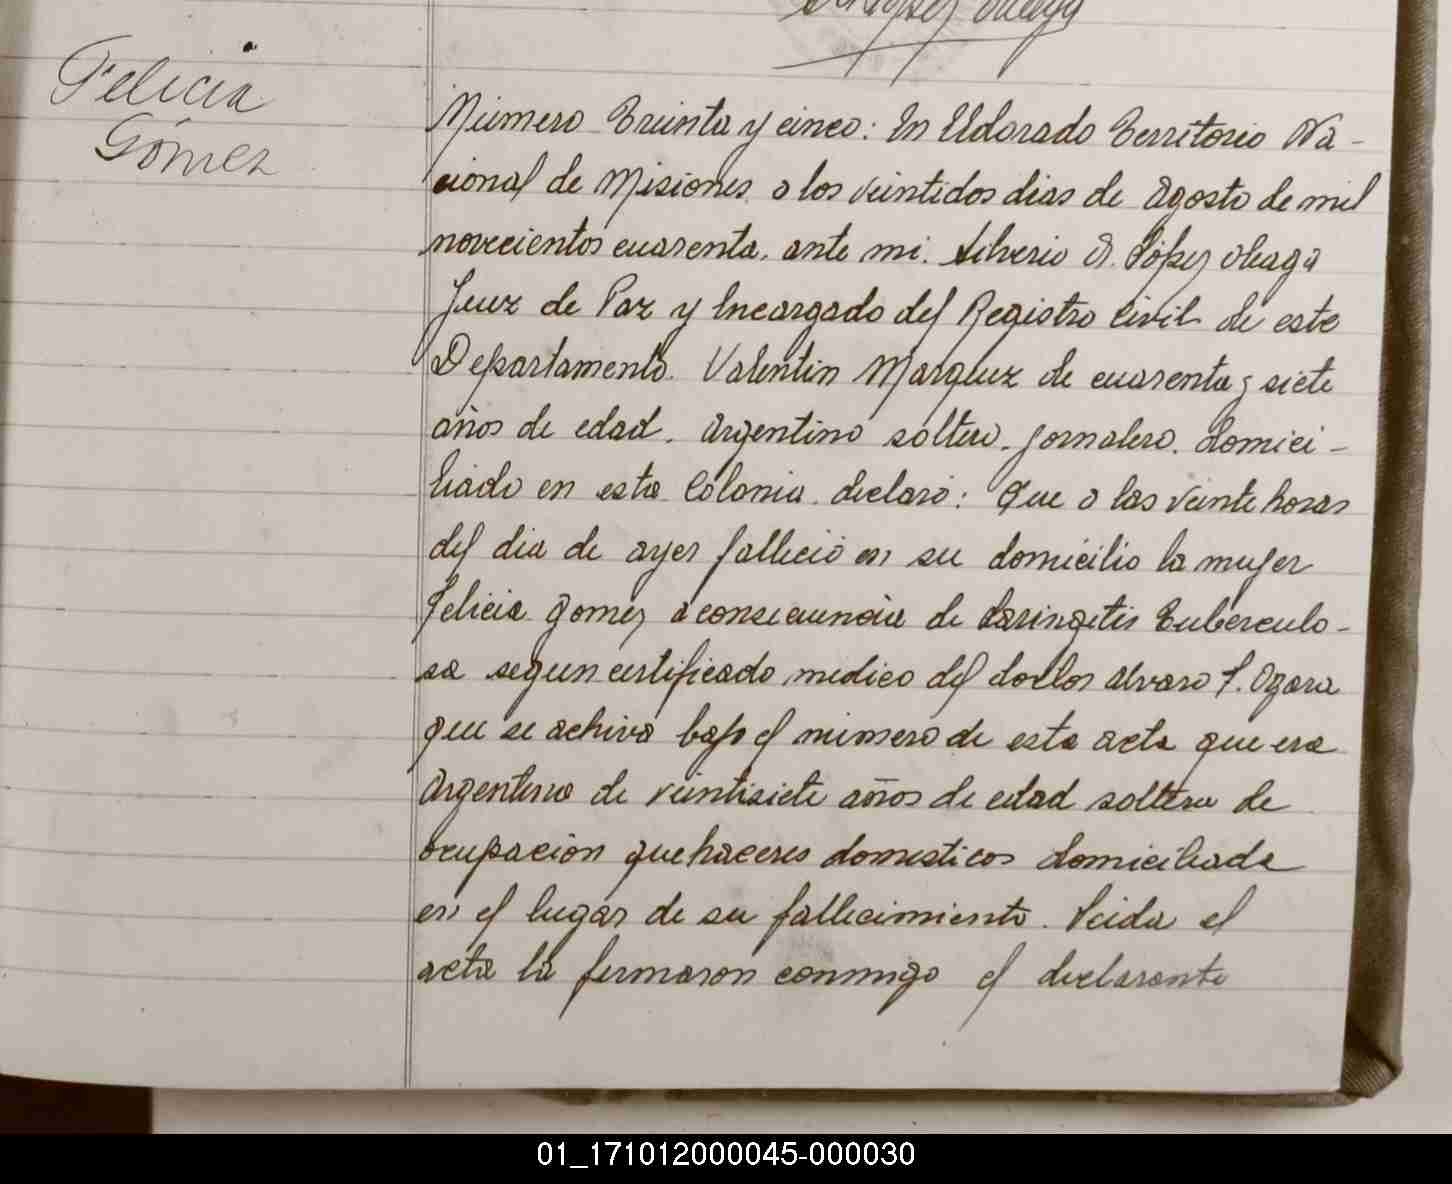 Felicia
Gómez
Número Treinta y cinco: En Eldorado Territorio Na-
cional de Misiones a los veintidos dias de Agosto de mil
novecientos cuarenta, ante mi. Silverio López
Juez de Paz y Encargado del Registro Civil de este
Departamento. Valentin Marquez de cuarenta y siete
años de edad. Argentino soltero. jornalero. domici-
liado en esta Colonia. declaró: Que a las veinte horas
del dia de ayer falleció en su domicilio la mujer
Felicia Gomez a consecuencia de Laringitis Tuberculo-
sa segun certificado medico del doctor Alvaro
que se achiva bajo el número de esta acta que era
Argentina de veintisiete años de edad soltera de
ocupación quehaceres domesticos domiciliada
en el lugar de su fallecimiento. Leida el
acta la firmaron conmigo el declarante
01_171012000045-000030